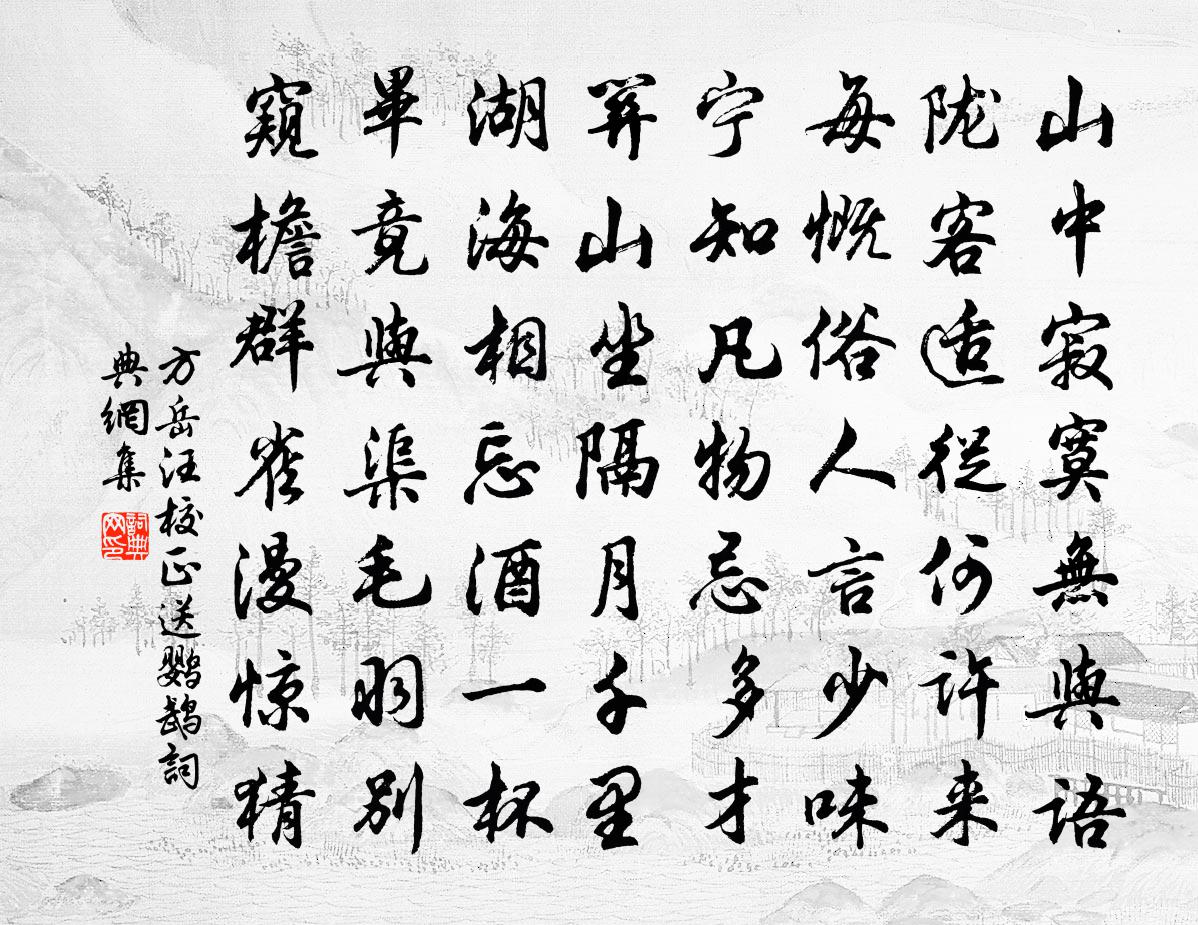 山中寂寞無與语
陇客适從何许来
每慨俗人言少味
宁知凡物忌多才
關山坐隔月千里
湖海相忘酒一杯
畢竟與渠毛羽别
窺檐群雀漫惊猜
方岳汪校正送鹦鹉詞
典網集
詞典
网印